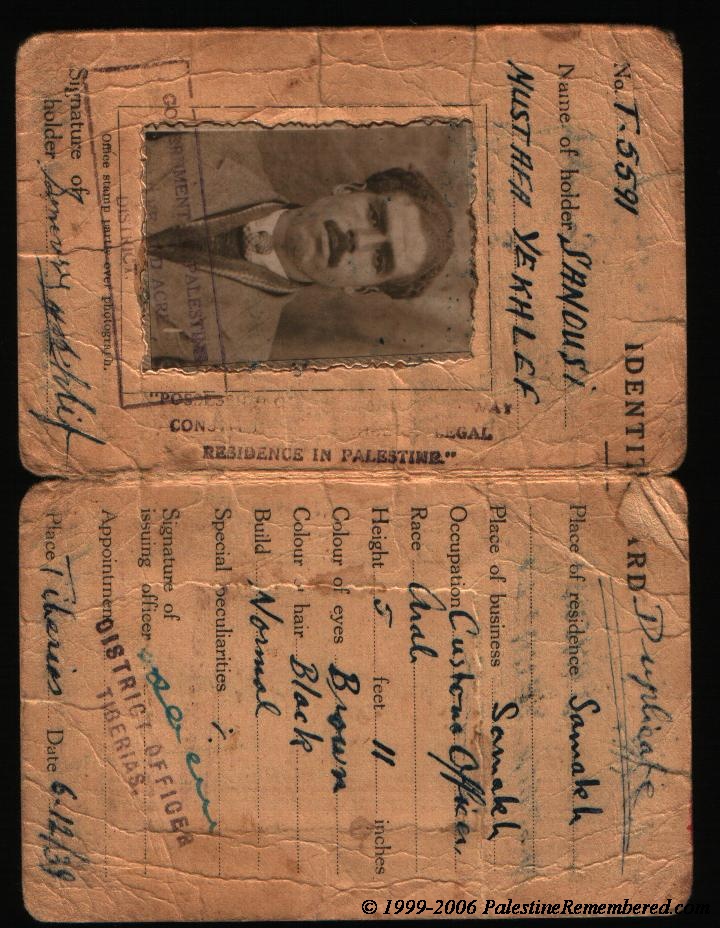 IDENTIT ARD
Duplicate
No. T. 5591
Name of holder SANOUSI
MUSTAFA YEKHLEF
GOVERNMENT PALESTINE
DISTRICT
Office stamp partly over photograph.
Signature of
holder
"POSSESSION
MAY
CONST LEGAL
RESIDENCE IN PALESTINE."
Place of residence Samakh
Place of business Samakh
Occupation Customs Officer
Race Arab
Height 5 feet 11 inches
Colour of eyes Brown
Colour of hair Black
Build Normal
Special peculiarities
Signature of
issuing officer
Appointment DISTRICT OFFICER
TIBERIAS.
Place Tiberias Date 6.12/39
© 1999-2006 PalestineRemembered.com